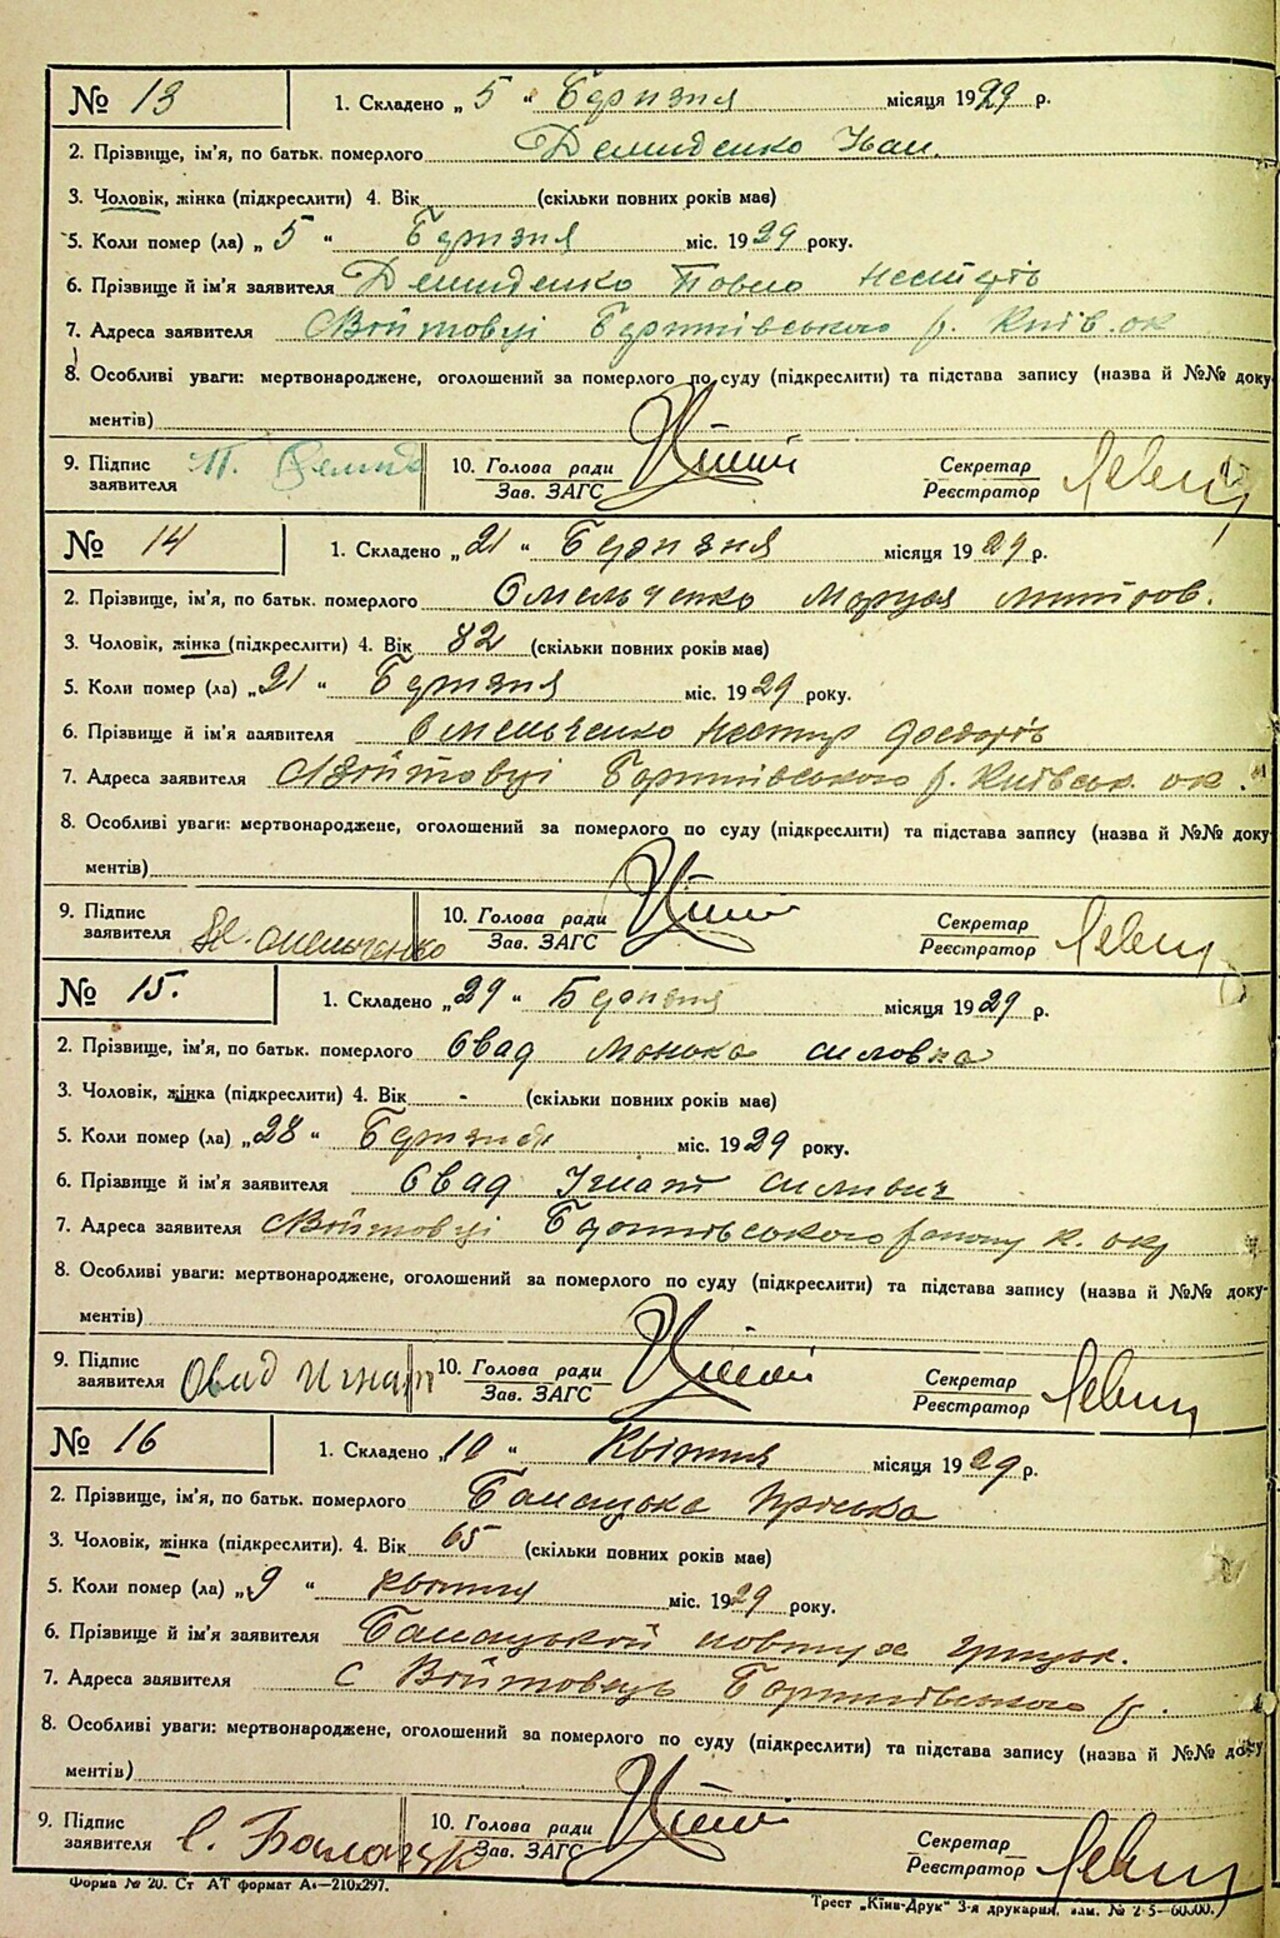 № 13
1. Складено „ 5 “ Березня місяця 1929 р.
2. Прізвище, ім'я, по батьк. померлого Демиденко Іван.
3. Чоловік, жінка (підкреслити) 4. Вік (скільки повних років має)
5. Коли помер (ла) „ 5 “ Березня міс. 1929 року.
6. Прізвище й ім'я заявителя Демиденко Павло
7. Адреса заявителя Війтовці р. Київ. ок
8. Особливі уваги: мертвонароджене, оголошений за померлого по суду (підкреслити) та підстава запису (назва й №№ доку
ментів)
9. Підпис заявителя П. Демид 10. Голова ради Зав. ЗАГС Секретар Реєстратор
№ 14
1. Складено „ 21 “ Березня місяця 1929 р.
2. Прізвище, ім'я, по батьк. померлого Омельченко
3. Чоловік, жінка (підкреслити) 4. Вік 82 (скільки повних років має)
5. Коли помер (ла) „ 21 “ Березня міс. 1929 року.
6. Прізвище й ім'я заявителя Омельченко Нестир
7. Адреса заявителя Війтовці р. Київськ. ок.
8. Особливі уваги: мертвонароджене, оголошений за померлого по суду (підкреслити) та підстава запису (назва й №№ доку
ментів)
9. Підпис заявителя Омельченко 10. Голова ради Зав. ЗАГС Секретар Реєстратор
№ 15.
1. Складено „ 29 “ Березня місяця 1929 р.
2. Прізвище, ім'я, по батьк. померлого Овад
3. Чоловік, жінка (підкреслити) 4. Вік - (скільки повних років має)
5. Коли помер (ла) „ 28 “ Березня міс. 1929 року.
6. Прізвище й ім'я заявителя Овад Ігнат
7. Адреса заявителя Війтовці району К. окр
8. Особливі уваги: мертвонароджене, оголошений за померлого по суду (підкреслити) та підстава запису (назва й №№ доку-
ментів)
9. Підпис заявителя Овад Игнат 10. Голова ради Зав. ЗАГС Секретар Реєстратор
№ 16
1. Складено „ 10 “ Квітня місяця 1929 р.
2. Прізвище, ім'я, по батьк. померлого Балацька Пріська
3. Чоловік, жінка (підкреслити). 4. Вік 65 (скільки повних років має)
5. Коли помер (ла) „ 9 “ квітня міс. 1929 року.
6. Прізвище й ім'я заявителя Балацький
7. Адреса заявителя с Війтовець р.
8. Особливі уваги: мертвонароджене, оголошений за померлого по суду (підкреслити) та підстава запису (назва й №№ доку
ментів)
9. Підпис заявителя С. 10. Голова ради Зав. ЗАГС Секретар Реєстратор
Форма № 20. Ст АТ формат А₄—210х297.
Трест „Київ-Друк“ 3-я друкарня,